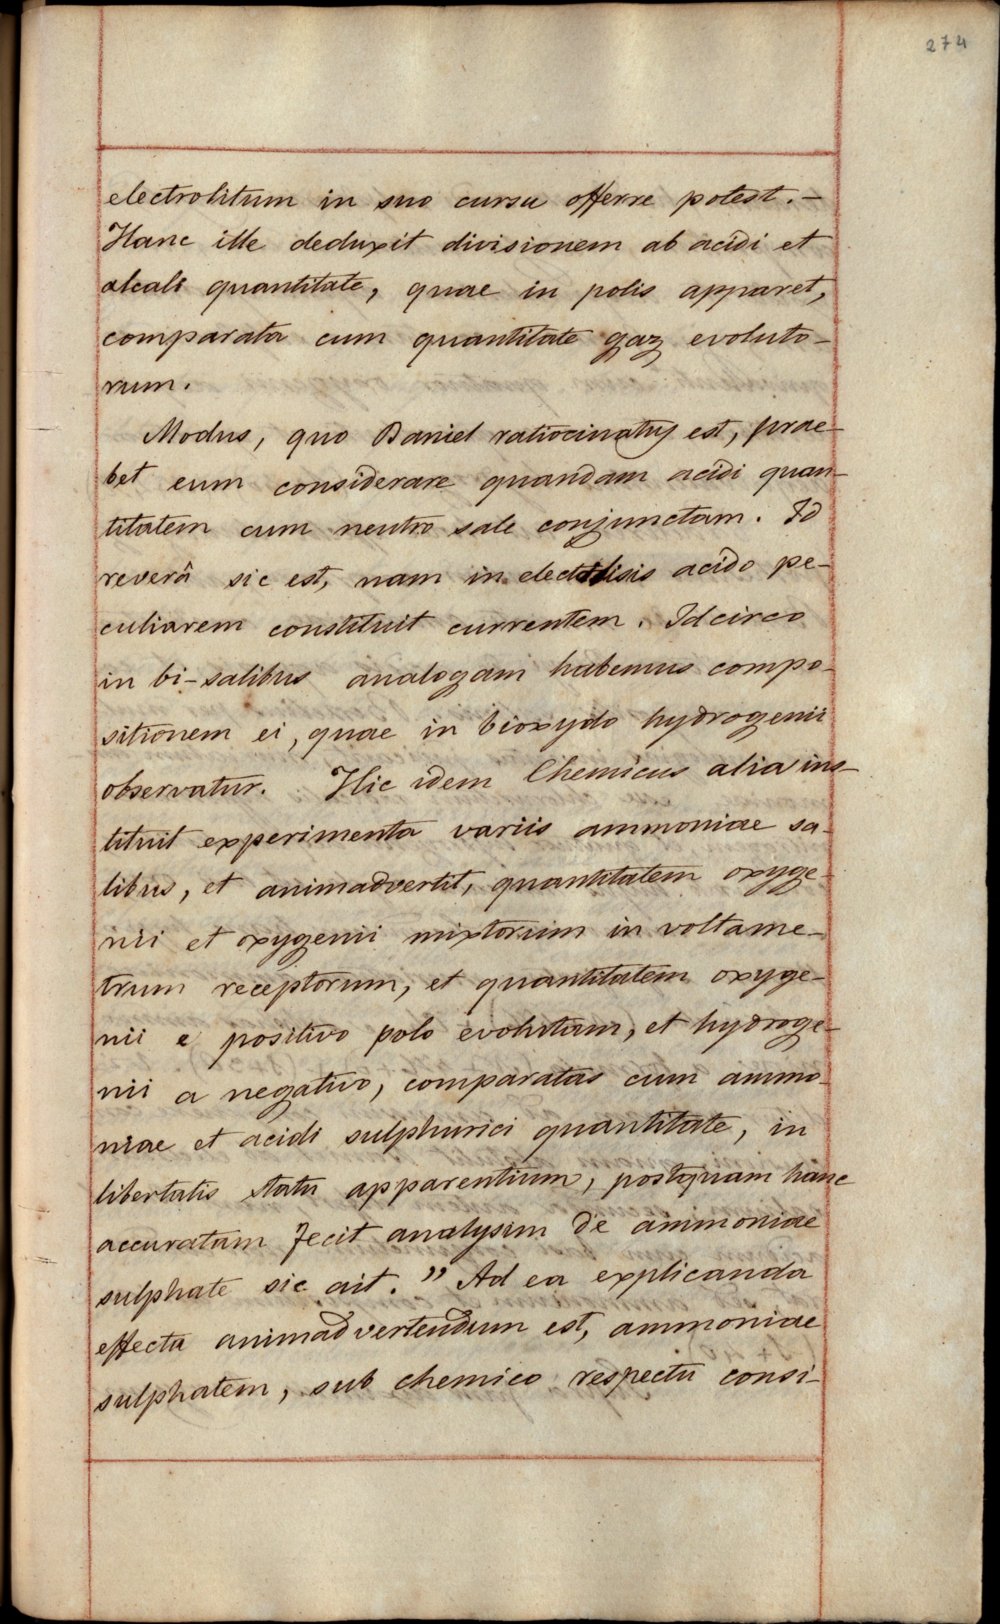 274
electrolitum in suo cursu offerre potest. –
Hanc ille deduxit divisionem ab acidi et
alcali quantitate, quae in polis apparet,
comparata cum quantitate gaz evoluto-
rum.
Modus, quo Daniel ratiocinatus est, prae-
bet eum considerare quandam acidi quan-
titatem cum neutro sale conjunctam. Id
reverâ sic est, nam in electrolisis acido pe-
culiarem constituit currentem. Idcirco
in bi-salibus analogam habemus compo-
sitionem ei, quae in bioxydo hydrogenii
observatur. Hic idem Chemicus alia ins-
tituit experimenta variis ammoniae sa-
libus, et animadvertit, quantitatem oxyge-
nii et oxygenii mixtorum in voltame-
trum receptorum, et quantitatem oxyge-
nii e positivo polo evolutam, et hydroge-
nii a negativo, comparatas cum ammo-
niae et acidi sulphurici quantitate, in
libertatis statu apparentium, postquam hanc
accuratam fecit analysim de ammoniae
sulphate sic ait. " Ad ea explicanda
effecta animadvertendum est, ammoniae
sulphatem, sub chemico respectu consi-